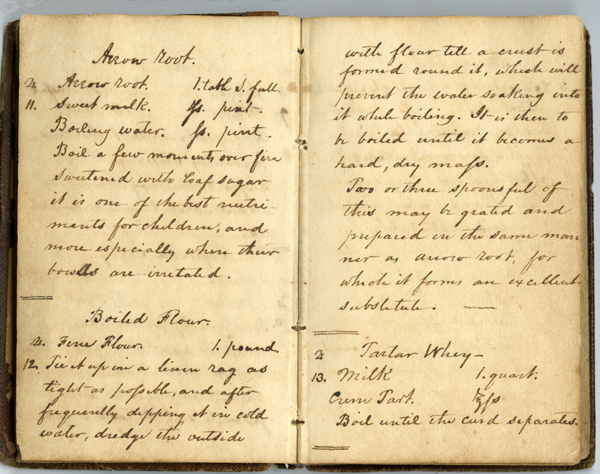 Arrow root.
Arrow root. 1. tabl S. full.
11. Sweet milk. fs. pint.
Boiling water. fs. pint.
Boil a few moments over fire
sweetened with loaf sugar
it is one of the best nutri-
ments for children, and
more especially when their
bowells are irritated.
Boiled Flour.
Fine Flour. 1. pound
12. Tie it up in a linen rag as
tight as possible, and after
frequently dipping it in cold
water, dredge the outside
with flour till a crust is
formed round it, which will
prevent the water soaking into
it while boiling. It is then to
be boiled until it becomes a
hard, dry mass.
Two or three spoonsful of
this may be grated and
prepared in the same man
ner as arrow root, for
which it forms an excellent
substitute.
Tartar Whey
13. Milk 1. quart.
Crem Tart.
Boil until the curd separates.